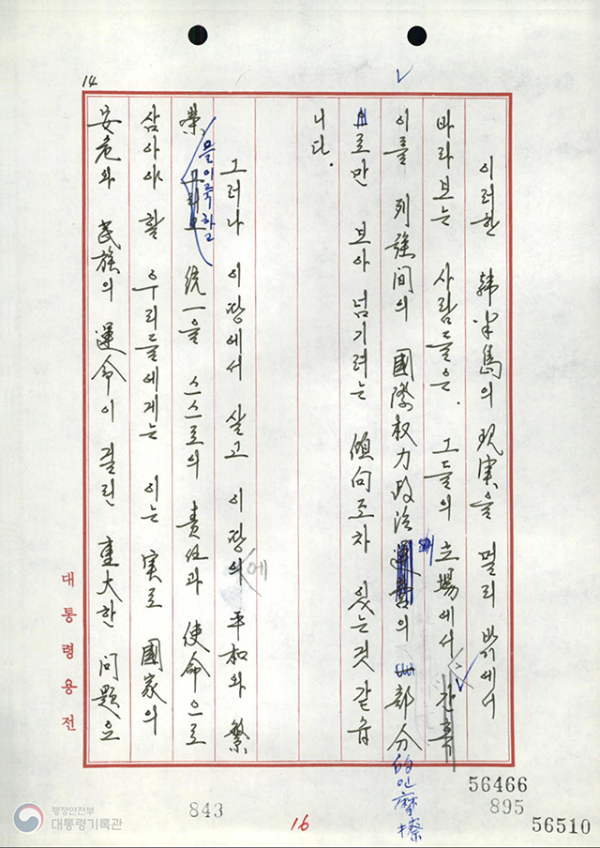 14
이러한 韓半島의 现実을 멀리 밖에서
바라보는 사람들은, 그들의 立場에서 간혹
이를 列強間의 國際权力政治의 一部分的인 摩擦
으로만 보아 넘기려는 傾向조차 있는 것 같습
니다.
그러나 이 땅에서 살고 이 땅에 平和와 繁
榮을 이룩하고 統一을 스스로의 責任과 使命으로
삼아야 할 우리들에게는 이는 実로 國家의
安危와 民族의 運命이 걸린 重大한 问題요
대통령용전
56466
843
895
16
56510
행정안전부
대통령기록관